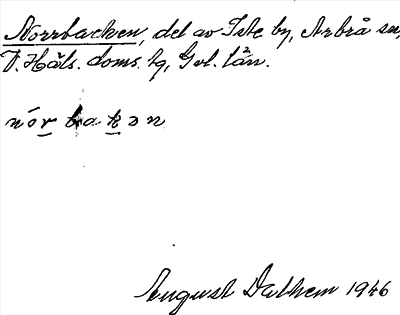 Norrbacken, del av Iste by, Arbrå sn,
V. Häls. doms. hg, Gvl. län.
nórbakən
August Dalhem 1946